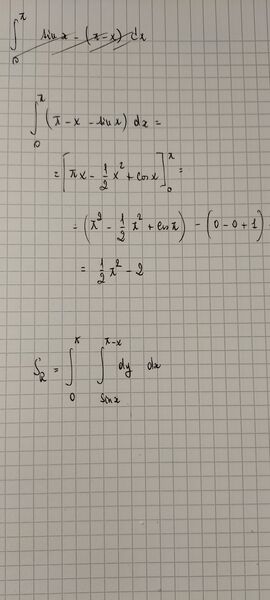 ∫₀^π sin x - (π-x) dx
∫₀^π (π - x - sin x) dx =
= [πx - 1/2 x² + cos x]₀^π =
= (π² - 1/2 π² + cos π) - (0 - 0 + 1)
= 1/2 π² - 2
S_R = ∫₀^π ∫_{sin x}^{π-x} dy dx